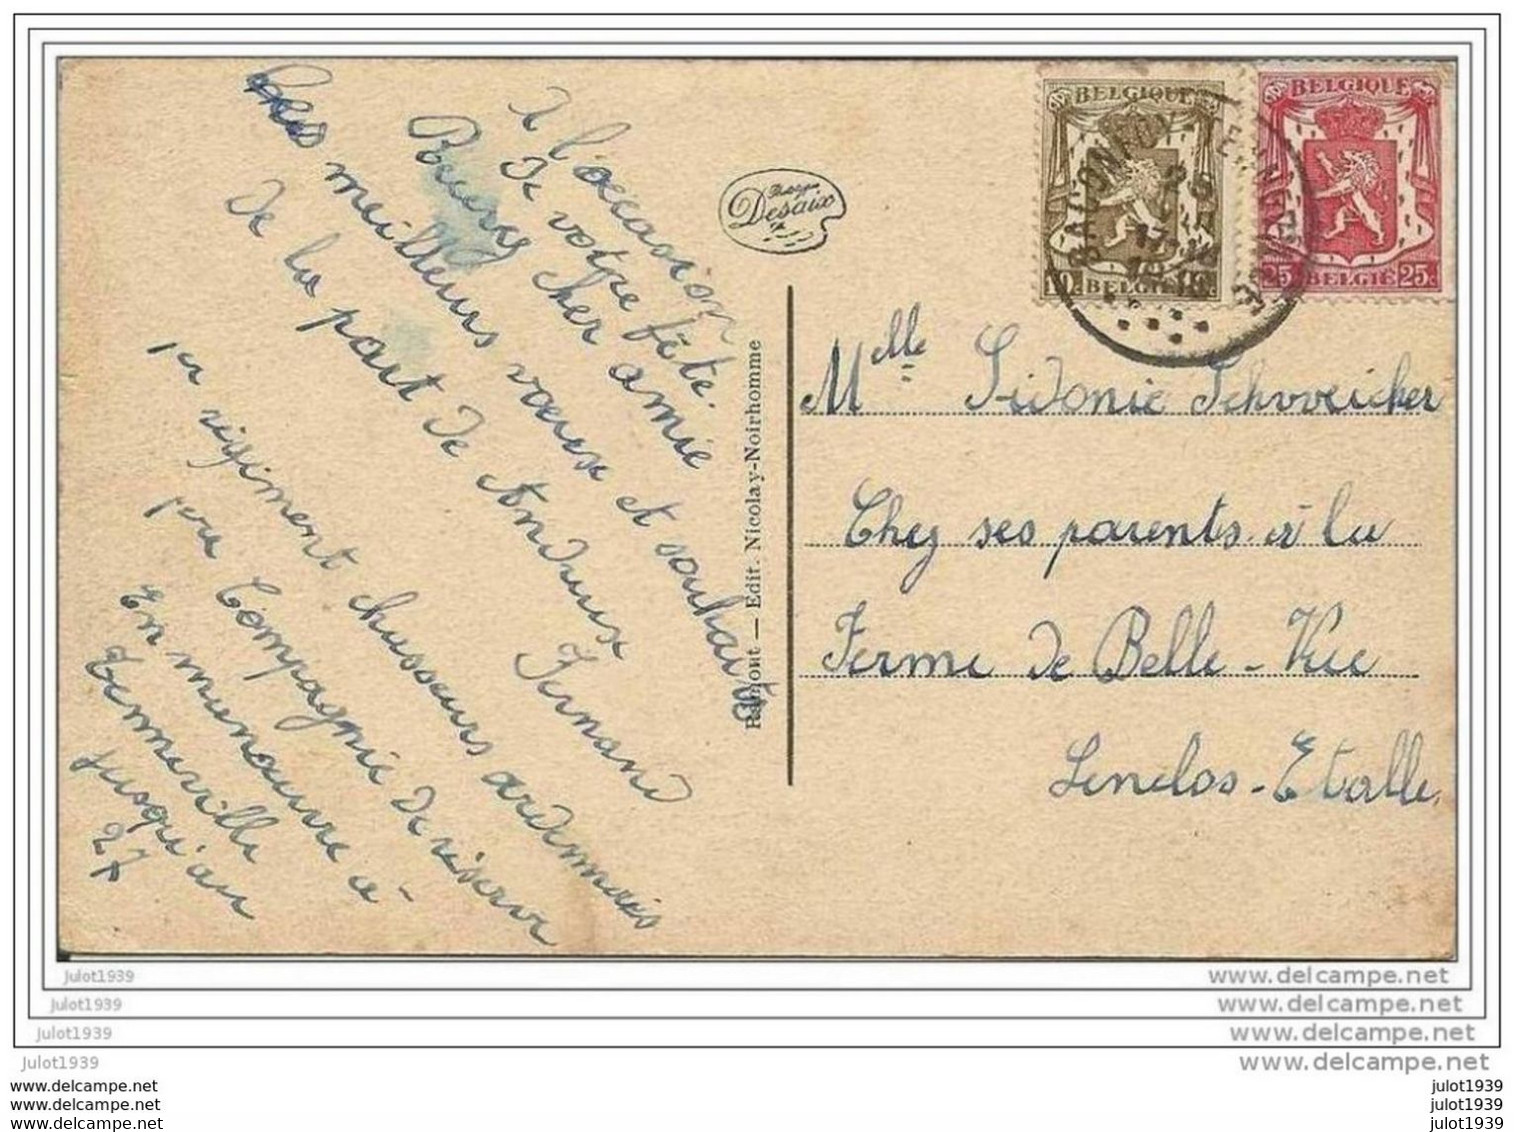 A l'occasion
De votre fête.
Recevez cher amie
Mes meilleurs vœux et souhaits
De la part de Andreux
Fernand
1er régiment chasseurs ardennais
1ere Compagnie De réserve
En maneouvre a
Tenneville
jusqu'au
27
Phototypie
Desaix
Ramont — Edit. Nicolay-Noirhomme
BELGIQUE
10 c BELGIË 10 c
BELGIQUE
25 BELGIË 25c
Mlle Sidonie Schweicher
Chez ses parents à la
Ferme De Belle-Vue
Lenclos-Etalle.
Julot1939
www.delcampe.net
Julot1939
www.delcampe.net
Julot1939
www.delcampe.net
Julot1939
www.delcampe.net
www.delcampe.net
julot1939
www.delcampe.net
julot1939
www.delcampe.net
julot1939